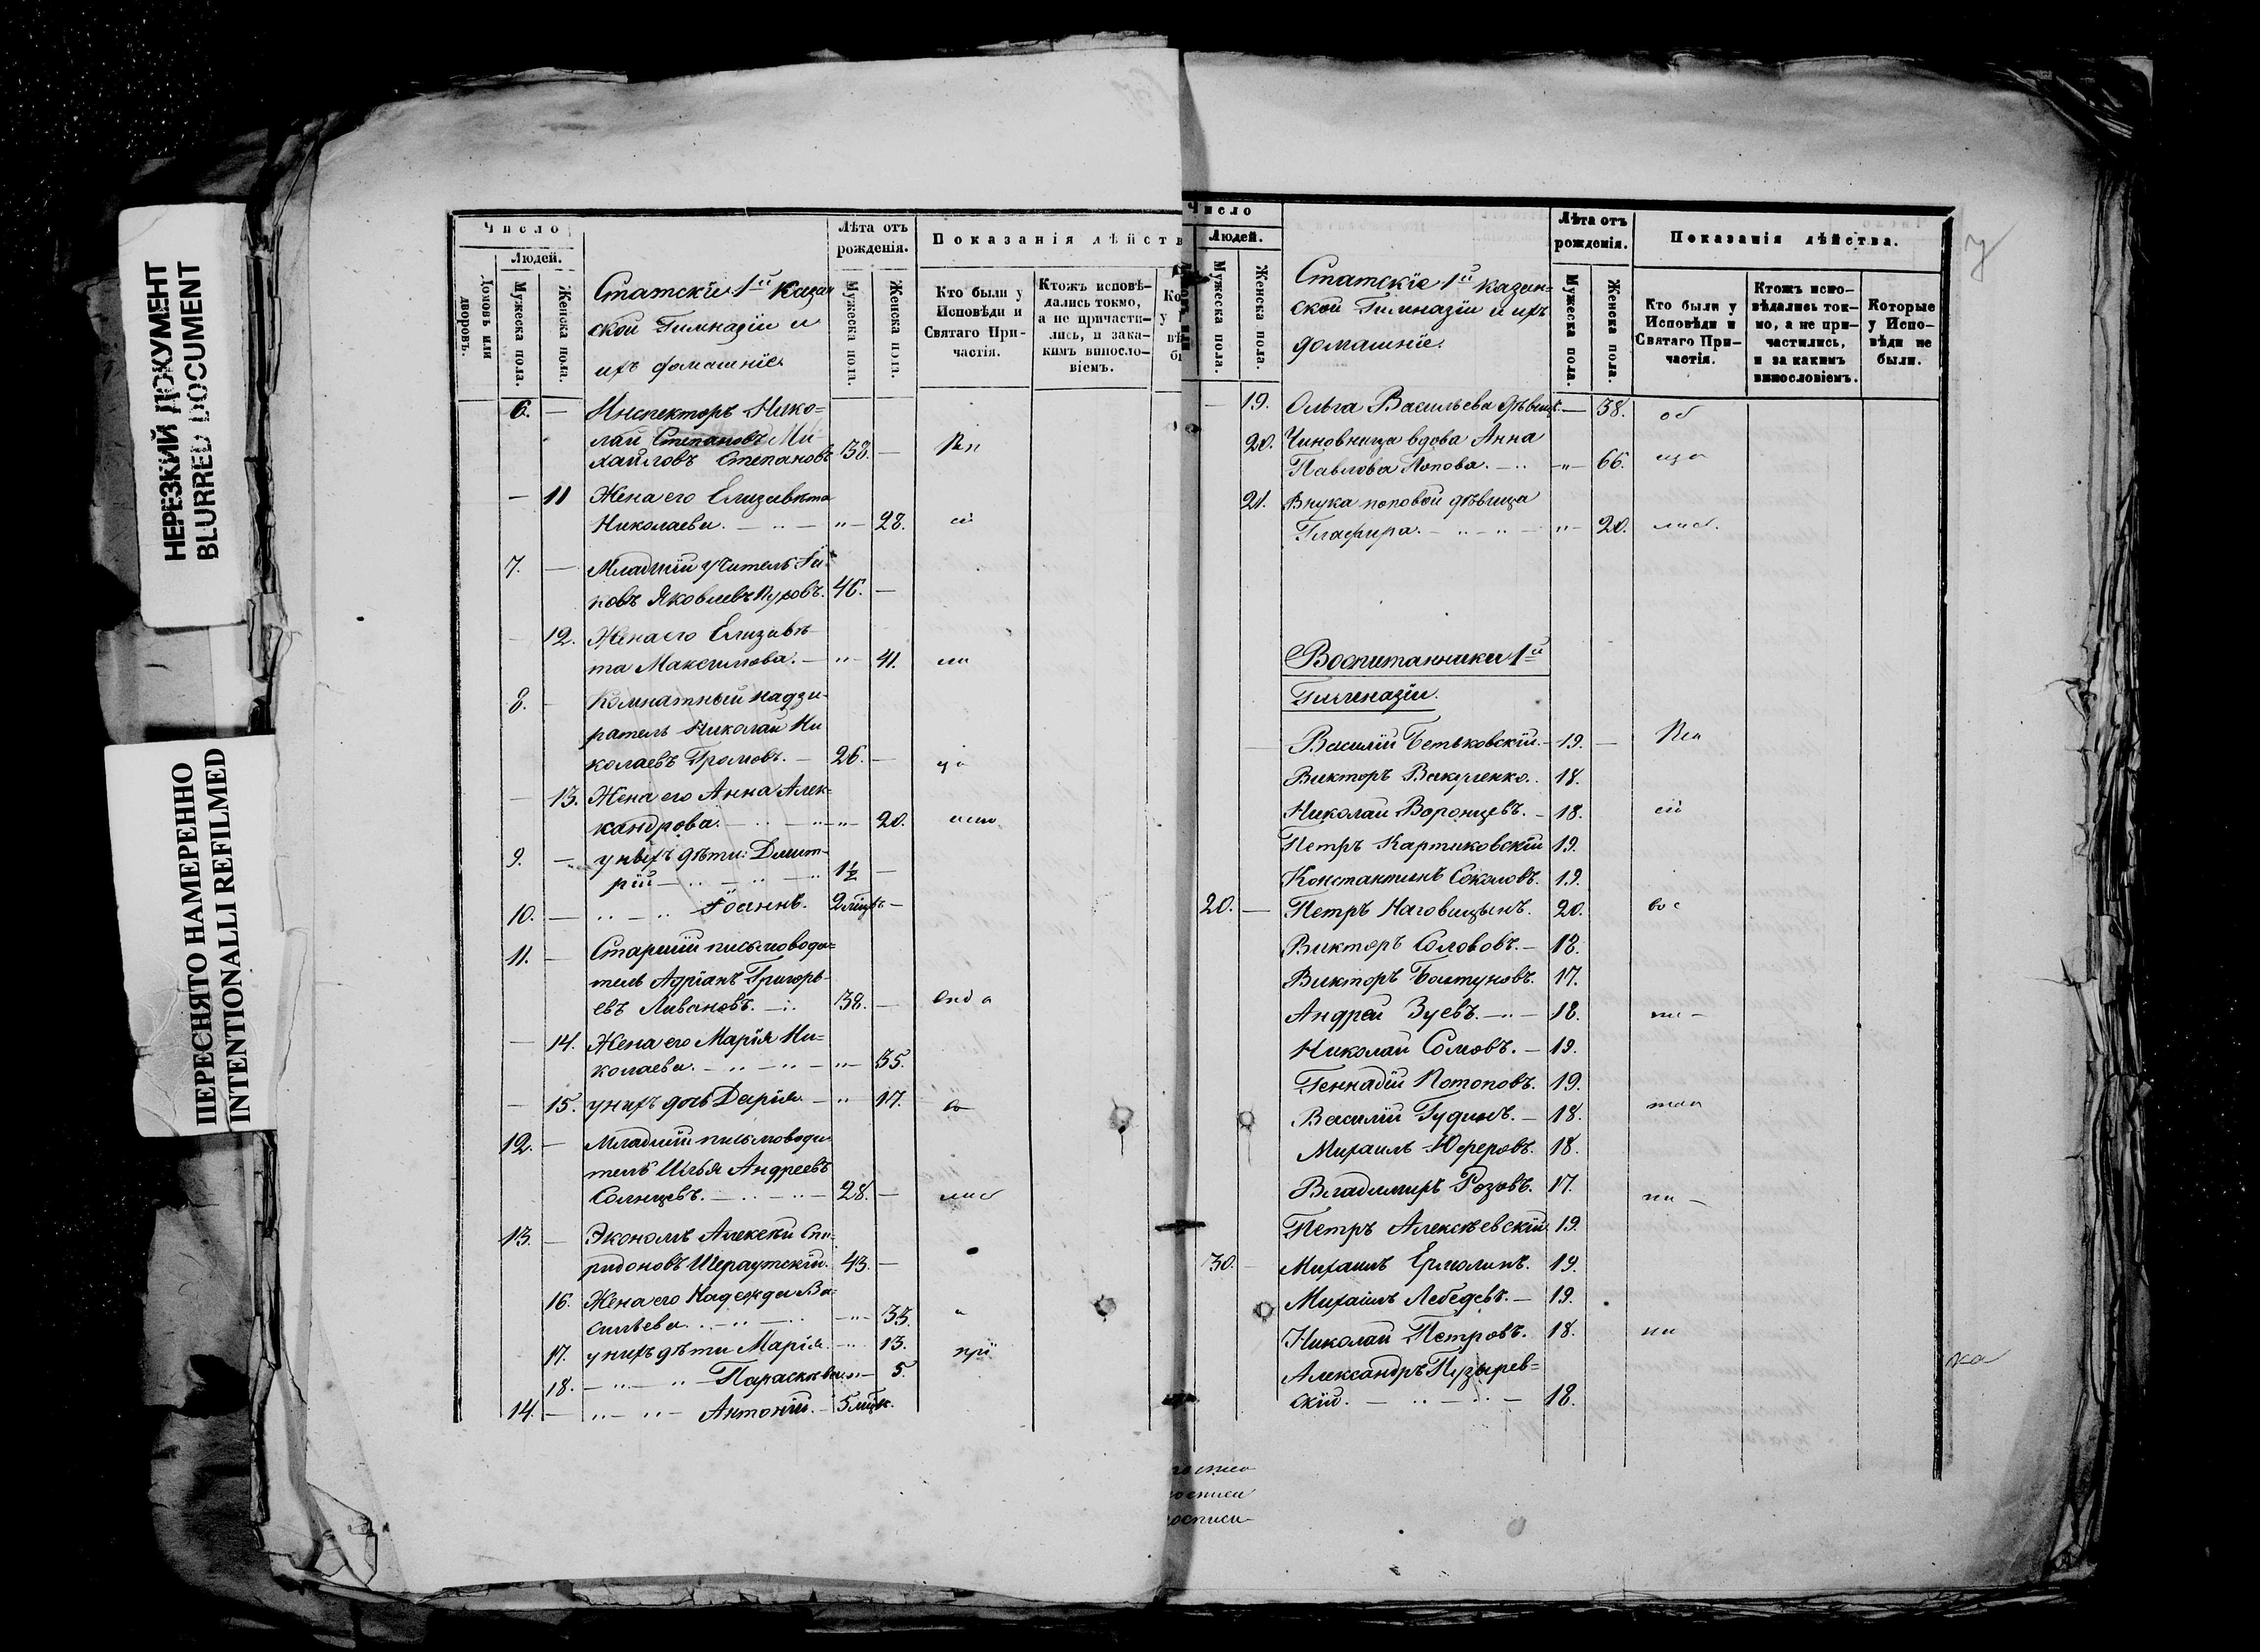 НЕРЕЗКИЙ ДОКУМЕНТ
BLURRED DOCUMENT
ПЕРЕСНЯТО НАМЕРЕННО
INTENTIONALLI REFILMED
Число
Людей.
Домовъ или дворовъ.
Мужеска пола.
Женска пола.
Статскіе 1й Казан
ской Гимназіи и
ихъ домашніе.
Лѣта отъ
рожденія.
Мужеска пола.
Женска пола.
Показанія дѣйств
Кто были у
Исповѣди и
Святаго При-
частія.
Ктожъ исповѣ-
дались токмо,
а не причасти-
лись, и зака-
кимъ винosло-
віемъ.
6. — Инспекторъ Нико=
лай Степановъ Ми-
хайловъ Степановъ 38. —
— 11 Жена его Елизавѣта
Николаева. — „ — 28.
7. — Младшій учитель
Яковлевъ 46. —
12. Жена его Елизавѣ-
та Максимова. — „ — 41.
8. — Комнатный надзи-
ратель Николай Ни
колаевъ Громовъ. — 26. —
— 13. Жена его Анна Алек-
сандрова. — „ — 20.
9. — у нихъ дѣти: Дмит-
рій — 1½ —
10. — Іоаннъ. 2 мѣц. —
11. — Старшій письмоводи=
тель Адріанъ Григорь-
евъ Ливановъ. — 38. —
— 14. Жена его Марія Ни=
колаева. — „ — 35.
— 15. у нихъ дочь Дарія — „ 17.
12. — Младшій письмоводи
тель Илья Андреевъ
Солнцевъ. — 28. —
13. — Экономъ Алексѣй Спи-
ридоновъ Шераутскій. 43. —
16. Жена его Надежда Ва-
сильева. — „ — 33.
17. у нихъ дѣти Марія. — „ 13.
18. — „ — Параскѣвія — 5.
14. — „ — Антоній. — 5 мѣц.
Число
Людей.
Мужеска пола.
Женска пола.
Статскіе 1й Казан=
ской Гимназіи и ихъ
домашніе.
Лѣта отъ
рожденія.
Мужеска пола.
Женска пола.
Показанія дѣйства.
Кто были у
Исповѣди и
Святаго При-
частія.
Ктожъ испо-
вѣдались ток-
мо, а не при-
частились,
и за какимъ
винословіемъ.
Которые
у Испо-
вѣди не
были.
— 19. Ольга Васильева дѣвица — 38.
20. Чиновница вдова Анна
Павлова Попова. — „ — 66.
21. Внука Поповой дѣвица
Глафира. — „ — 20.
Воспитанники 1й
Гимназіи.
Василій Бетьковскій. — 19. —
Викторъ 18.
Николай Воронцевъ. — 18.
Петръ Картиковскій 19.
Константинъ Соколовъ. 19.
20. — Петръ Наговицынъ. 20.
Викторъ Соловов. — 18.
Викторъ 17.
Андрей Зуевъ. — 18.
Николай Сомовъ. — 19.
Геннадій Потоповъ. 19.
Василій Гудинъ. — 18.
Михаилъ Юферовъ. 18.
Владимиръ Розовъ. 17.
Петръ Алексѣевскій 19.
30. Михаилъ Ермолинъ. 19.
Михаилъ Лебедевъ. — 19.
Николай Петровъ. 18.
Александръ Пузырев=
скій. — 18.